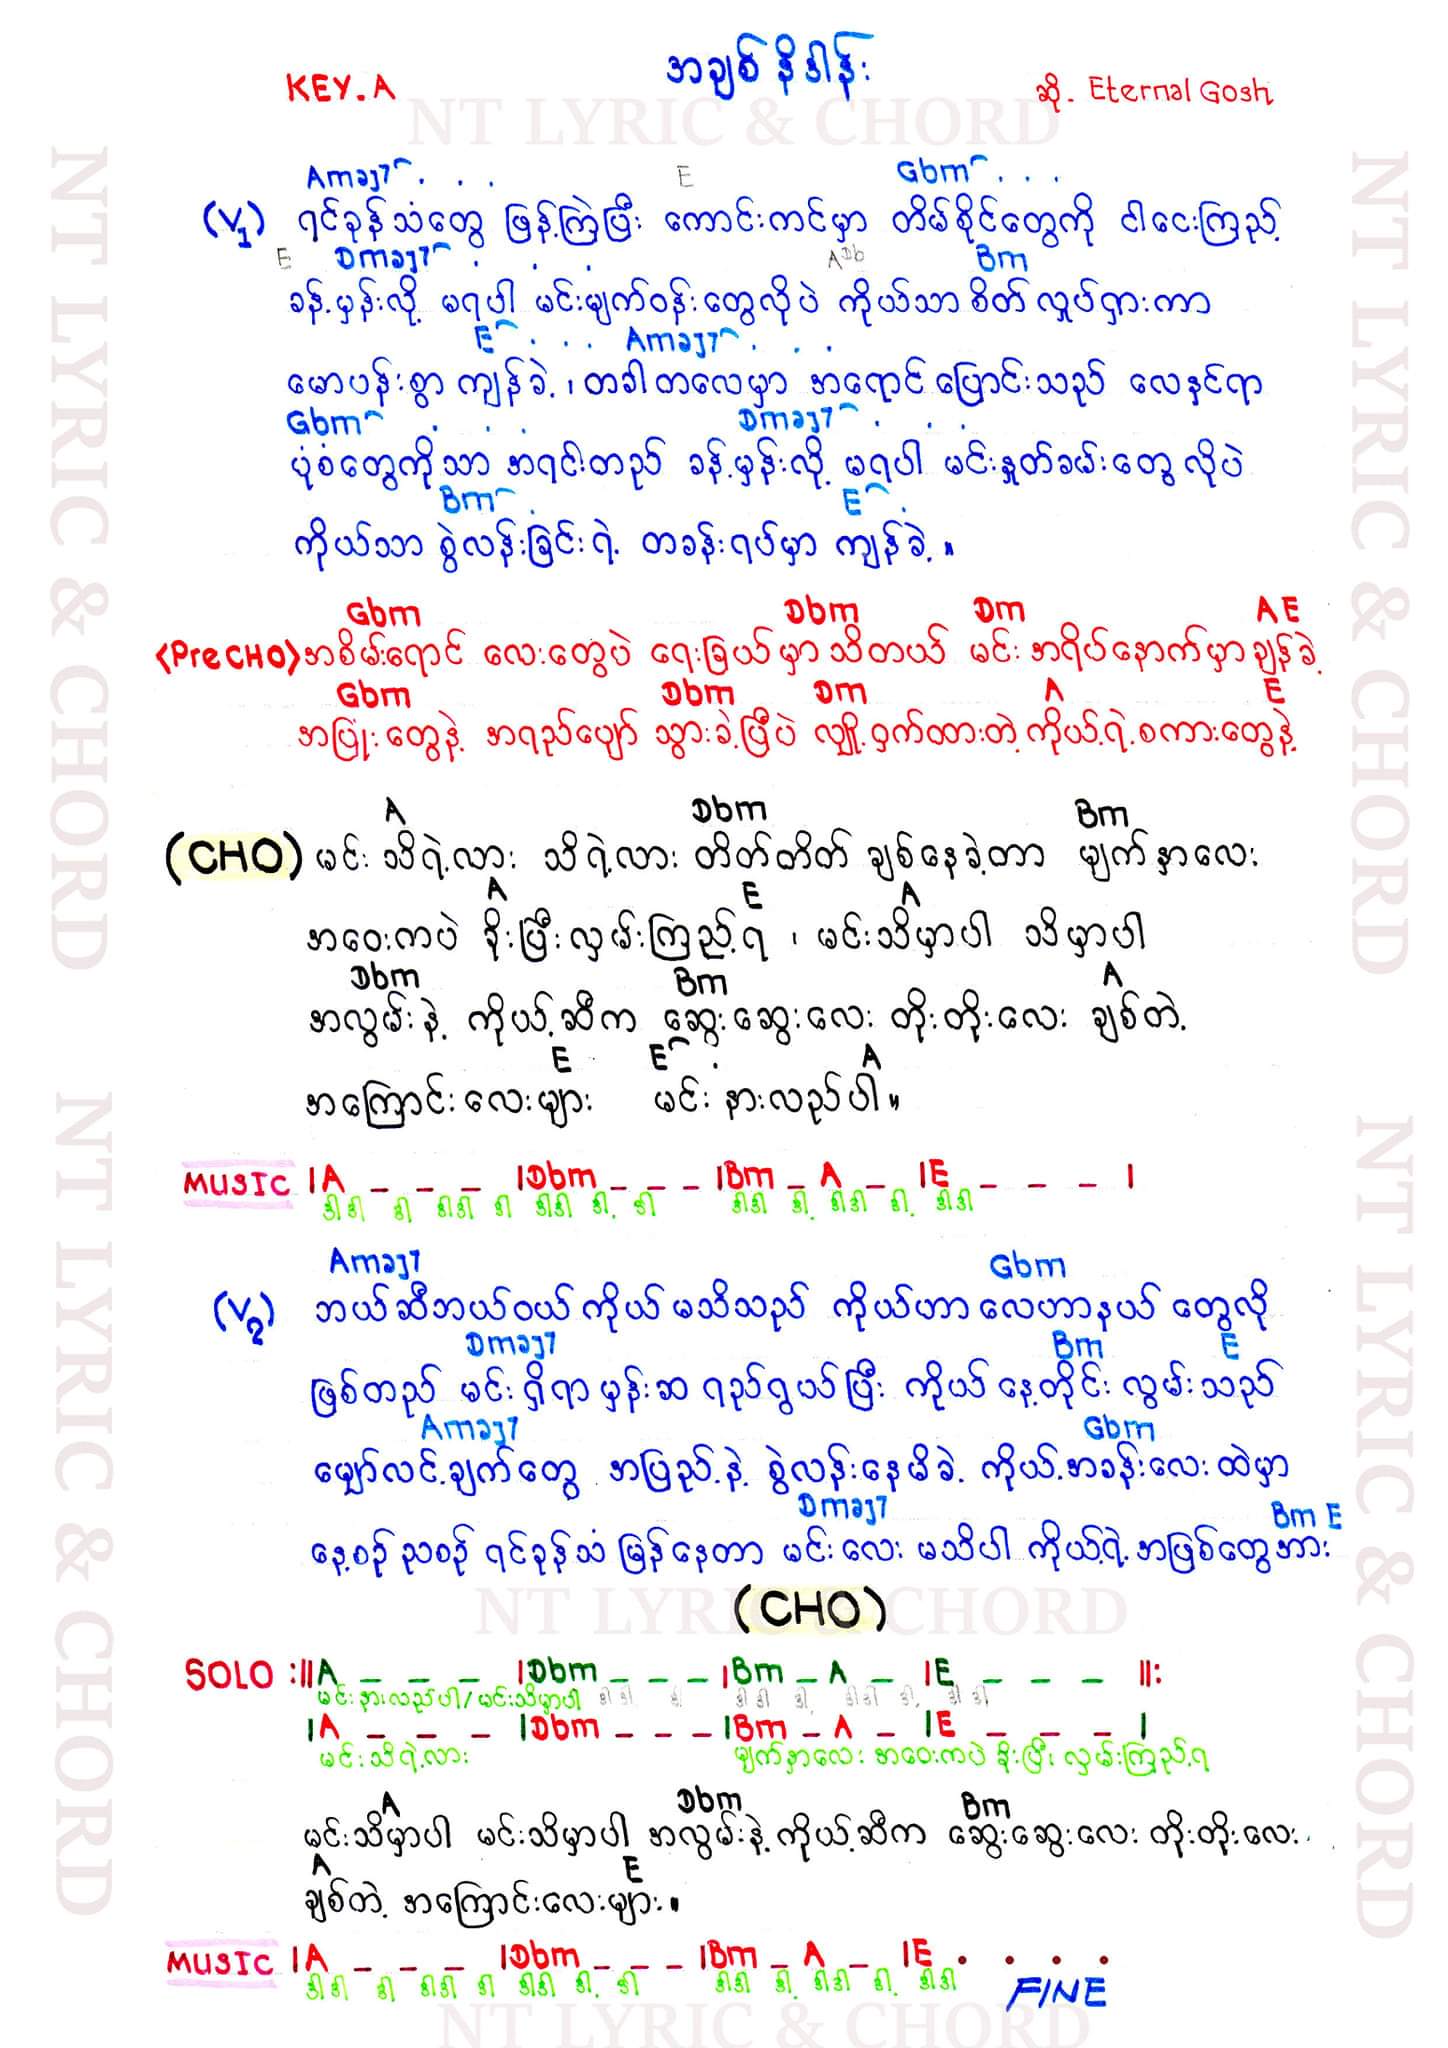 အချစ်နိဒါန်း
KEY.A
ဆို. Eternal Gosh
NT LYRIC & CHORD
NT LYRIC & CHORD
NT LYRIC & CHORD
Amaj7 . . . E Gbm . . .
(V1) ရင်ခုန်သံတွေ ဖြန့်ကြဲပြီး ကောင်းကင်မှာ တိမ်စိုင်တွေကို ငါငေးကြည့်
E Dmaj7 . . . A Db Bm
ခန့်မှန်းလို့ မရပါ မင်းမျက်ဝန်းတွေလိုပဲ ကိုယ်သာ စိတ်လှုပ်ရှားကာ
E . . . Amaj7 . . .
မောပန်းစွာ ကျန်ခဲ့ ၊ တခါတလေမှာ အရောင်ပြောင်းသည် လေနှင်ရာ
Gbm . . . Dmaj7 . . .
ပုံစံတွေကိုသာ အရင်းတည် ခန့်မှန်းလို့ မရပါ မင်းနှုတ်ခမ်းတွေ လိုပဲ
Bm . E .
ကိုယ်သာ စွဲလန်းခြင်းရဲ့ တခန်းရပ်မှာ ကျန်ခဲ့ ။
Gbm Dbm Dm A E
<Pre CHO> အစိမ်းရောင် လေးတွေပဲ ရေးခြယ်မှာ သိတယ် မင်း အရိပ်နောက်မှာ ချန်ခဲ့
Gbm Dbm Dm A E
အပြုံးတွေနဲ့ အရည်ပျော် သွားခဲ့ပြီပဲ လျှို့ဝှက်ထားတဲ့ ကိုယ့်ရဲ့စကားတွေနဲ့
A Dbm Bm
(CHO) မင်း သိရဲ့လား သိရဲ့လား တိတ်တိတ် ချစ်နေခဲ့တာ မျက်နှာလေး
A E A
အဝေးကပဲ ခိုးပြီးလှမ်းကြည့်ရ ၊ မင်းသိမှာပါ သိမှာပါ
Dbm Bm A
အလွမ်းနဲ့ ကိုယ့်ဆီက ဆွေးဆွေးလေး တိုးတိုးလေး ချစ်တဲ့
E E . A
အကြောင်းလေးများ မင်း နားလည်ပါ ။
MUSIC |A _ _ _ |Dbm _ _ _ |Bm _ A _ |E _ _ _ |
ဒါဒါ ဒါ ဒါဒါ ဒါ ဒါဒါ ဒါ့ ဒါ ဒါဒါ ဒါ့ ဒါဒါ ဒါ့ ဒါဒါ
Amaj7 Gbm
(V2) ဘယ်ဆီဘယ်ဝယ် ကိုယ် မသိသည် ကိုယ်ဟာ လေဟာနယ် တွေလို
Dmaj7 Bm E
ဖြစ်တည် မင်း ရှိရာ မှန်းဆ ရည်ရွယ်ပြီး ကိုယ် နေ့တိုင်း လွမ်းသည်
Amaj7 Gbm
မျှော်လင့်ချက်တွေ အပြည့်နဲ့ စွဲလန်းနေမိခဲ့ ကိုယ့်အခန်းလေးထဲမှာ
Dmaj7 Bm E
နေ့စဉ် ညစဉ် ရင်ခုန်သံ မြန်နေတာ မင်းလေး မသိပါ ကိုယ့်ရဲ့အဖြစ်တွေအား
NT LYRIC & CHORD
(CHO)
NT LYRIC & CHORD
NT LYRIC & CHORD
SOLO :||A _ _ _ |Dbm _ _ _ |Bm _ A _ |E _ _ _ ||:
မင်းနားလည်ပါ/မင်းသိမှာပါ ဒါဒါ ဒါ ဒါဒါ ဒါ့ ဒါဒါ ဒါ့ ဒါဒါ
|A _ _ _ |Dbm _ _ _ |Bm _ A _ |E _ _ _ |
မင်းသိရဲ့လား မျက်နှာလေး အဝေးကပဲ ခိုးပြီး လှမ်းကြည့်ရ
A Dbm Bm
မင်းသိမှာပါ မင်းသိမှာပါ အလွမ်းနဲ့ ကိုယ့်ဆီက ဆွေးဆွေးလေး တိုးတိုးလေး
A E
ချစ်တဲ့ အကြောင်းလေးများ ။
MUSIC |A _ _ _ |Dbm _ _ _ |Bm _ A _ |E . . . .
ဒါဒါ ဒါ ဒါဒါ ဒါ ဒါဒါ ဒါ့ ဒါ ဒါဒါ ဒါ့ ဒါဒါ ဒါ့ ဒါဒါ
FINE
NT LYRIC & CHORD